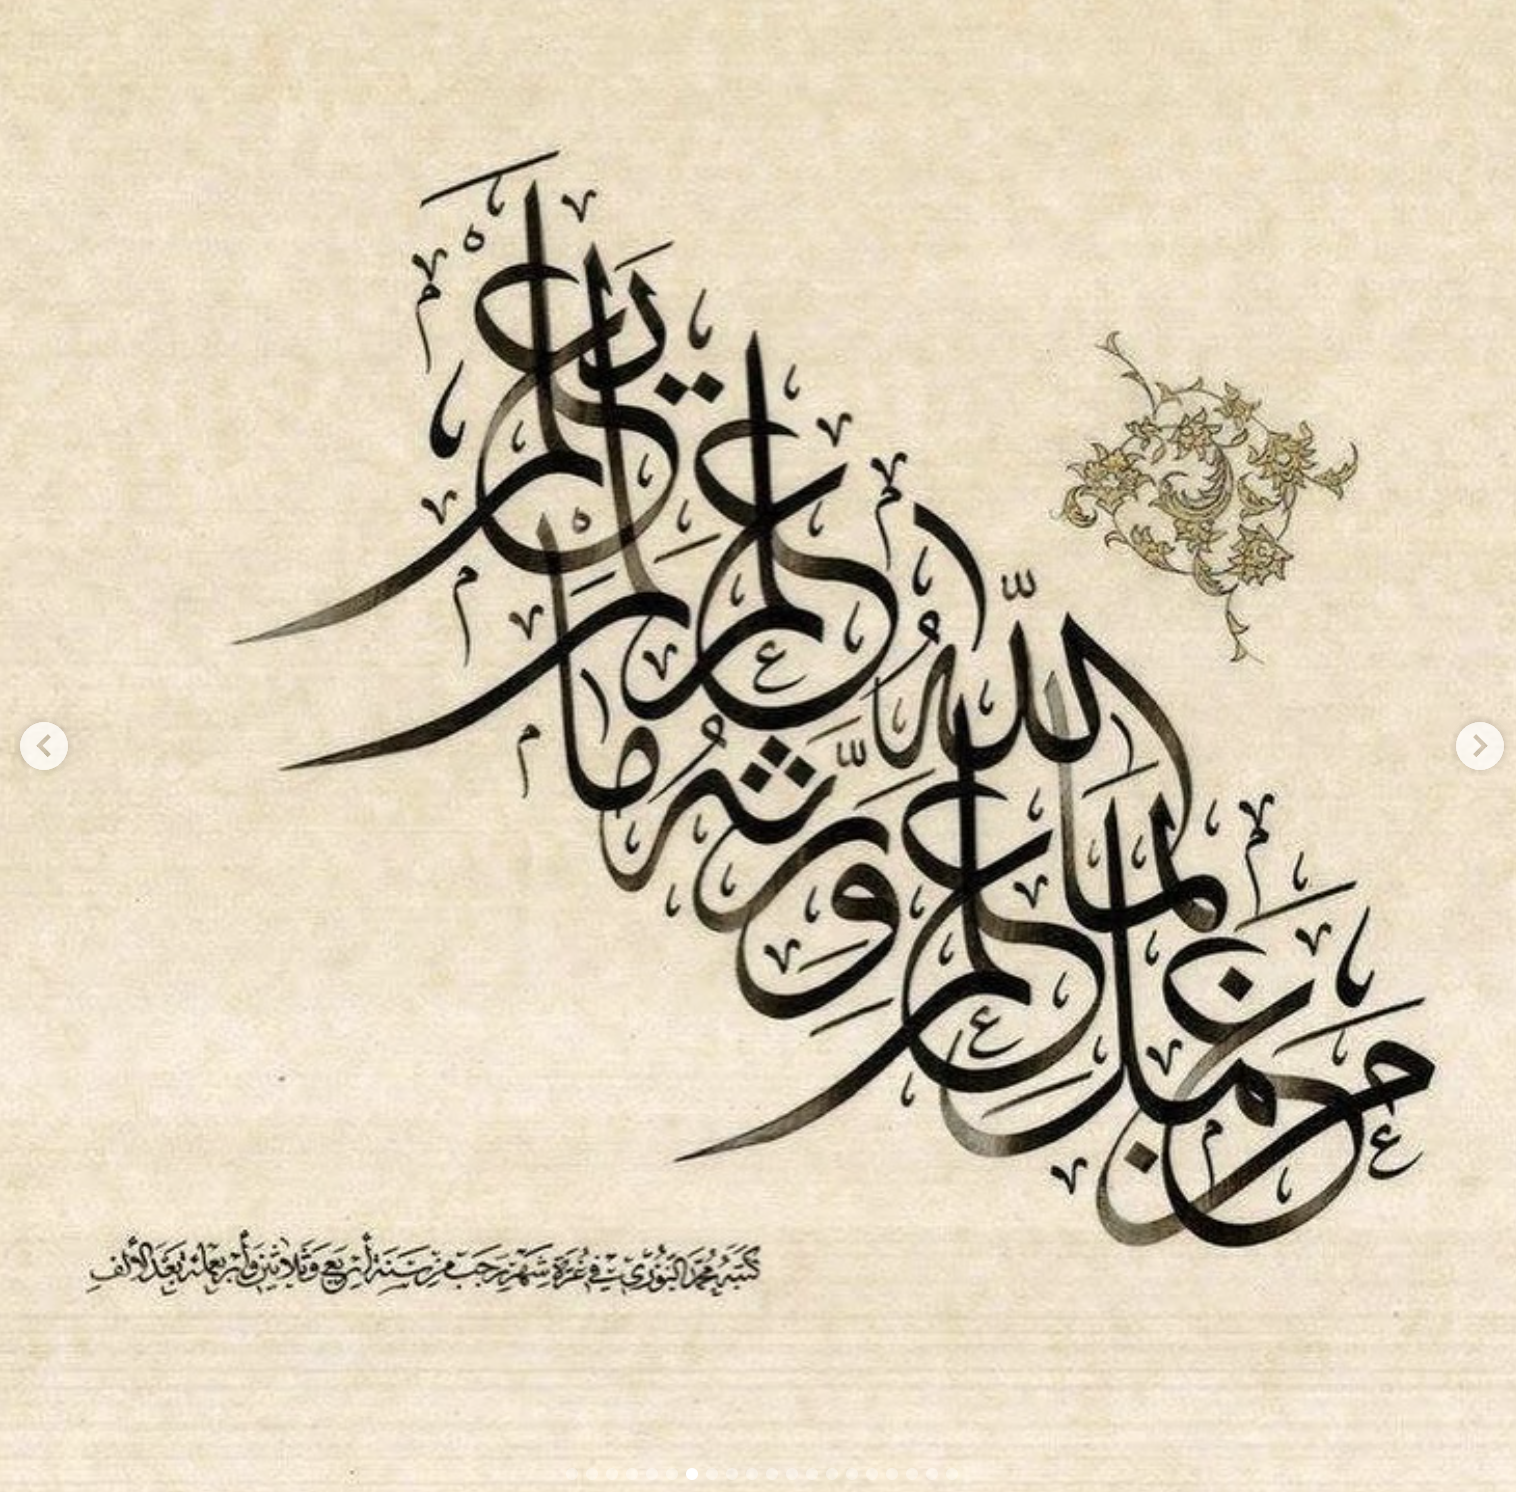 مَن عَمِلَ بِمَا عَلِمَ وَرَّثَهُ اللهُ عِلْمَ مَا لَمْ يَعْلَمْ
كتبه محمد النوري في غرة شهر رجب من سنة أربع وثلاثين وأربعمائة بعد الألف